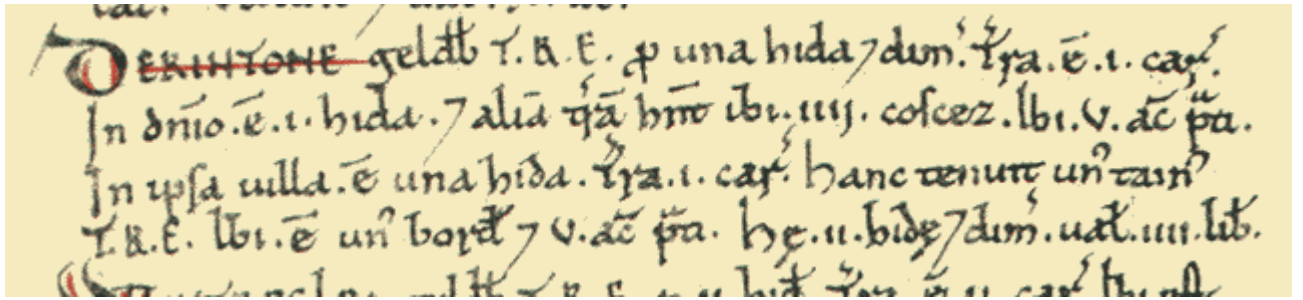 DERINTONE geldb̄ T.R.E. ꝓ una hida ⁊ dim̄. Tr̃a.ē.i.car̃.
In dn̄io.ē.i.hida.⁊ aliā tr̃ā hn̄t ibi.iiij.coſcez. Ibi.v.ac̄ p̃ti.
In ipſa uilla.ē una hida. Tr̃ra.i.car̃. Hanc tenuit un᾽ tain᾽
T.R.E. Ibi.ē un᾽ bord̄ ⁊ v.ac̄ p̃ti. Hę.ii.hidę ⁊ dim̄.ual̄.iiii.lib̄.